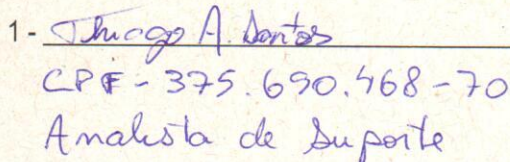 1- Thiago A. Santos
CPF - 375.690.468-70
Analista de Suporte